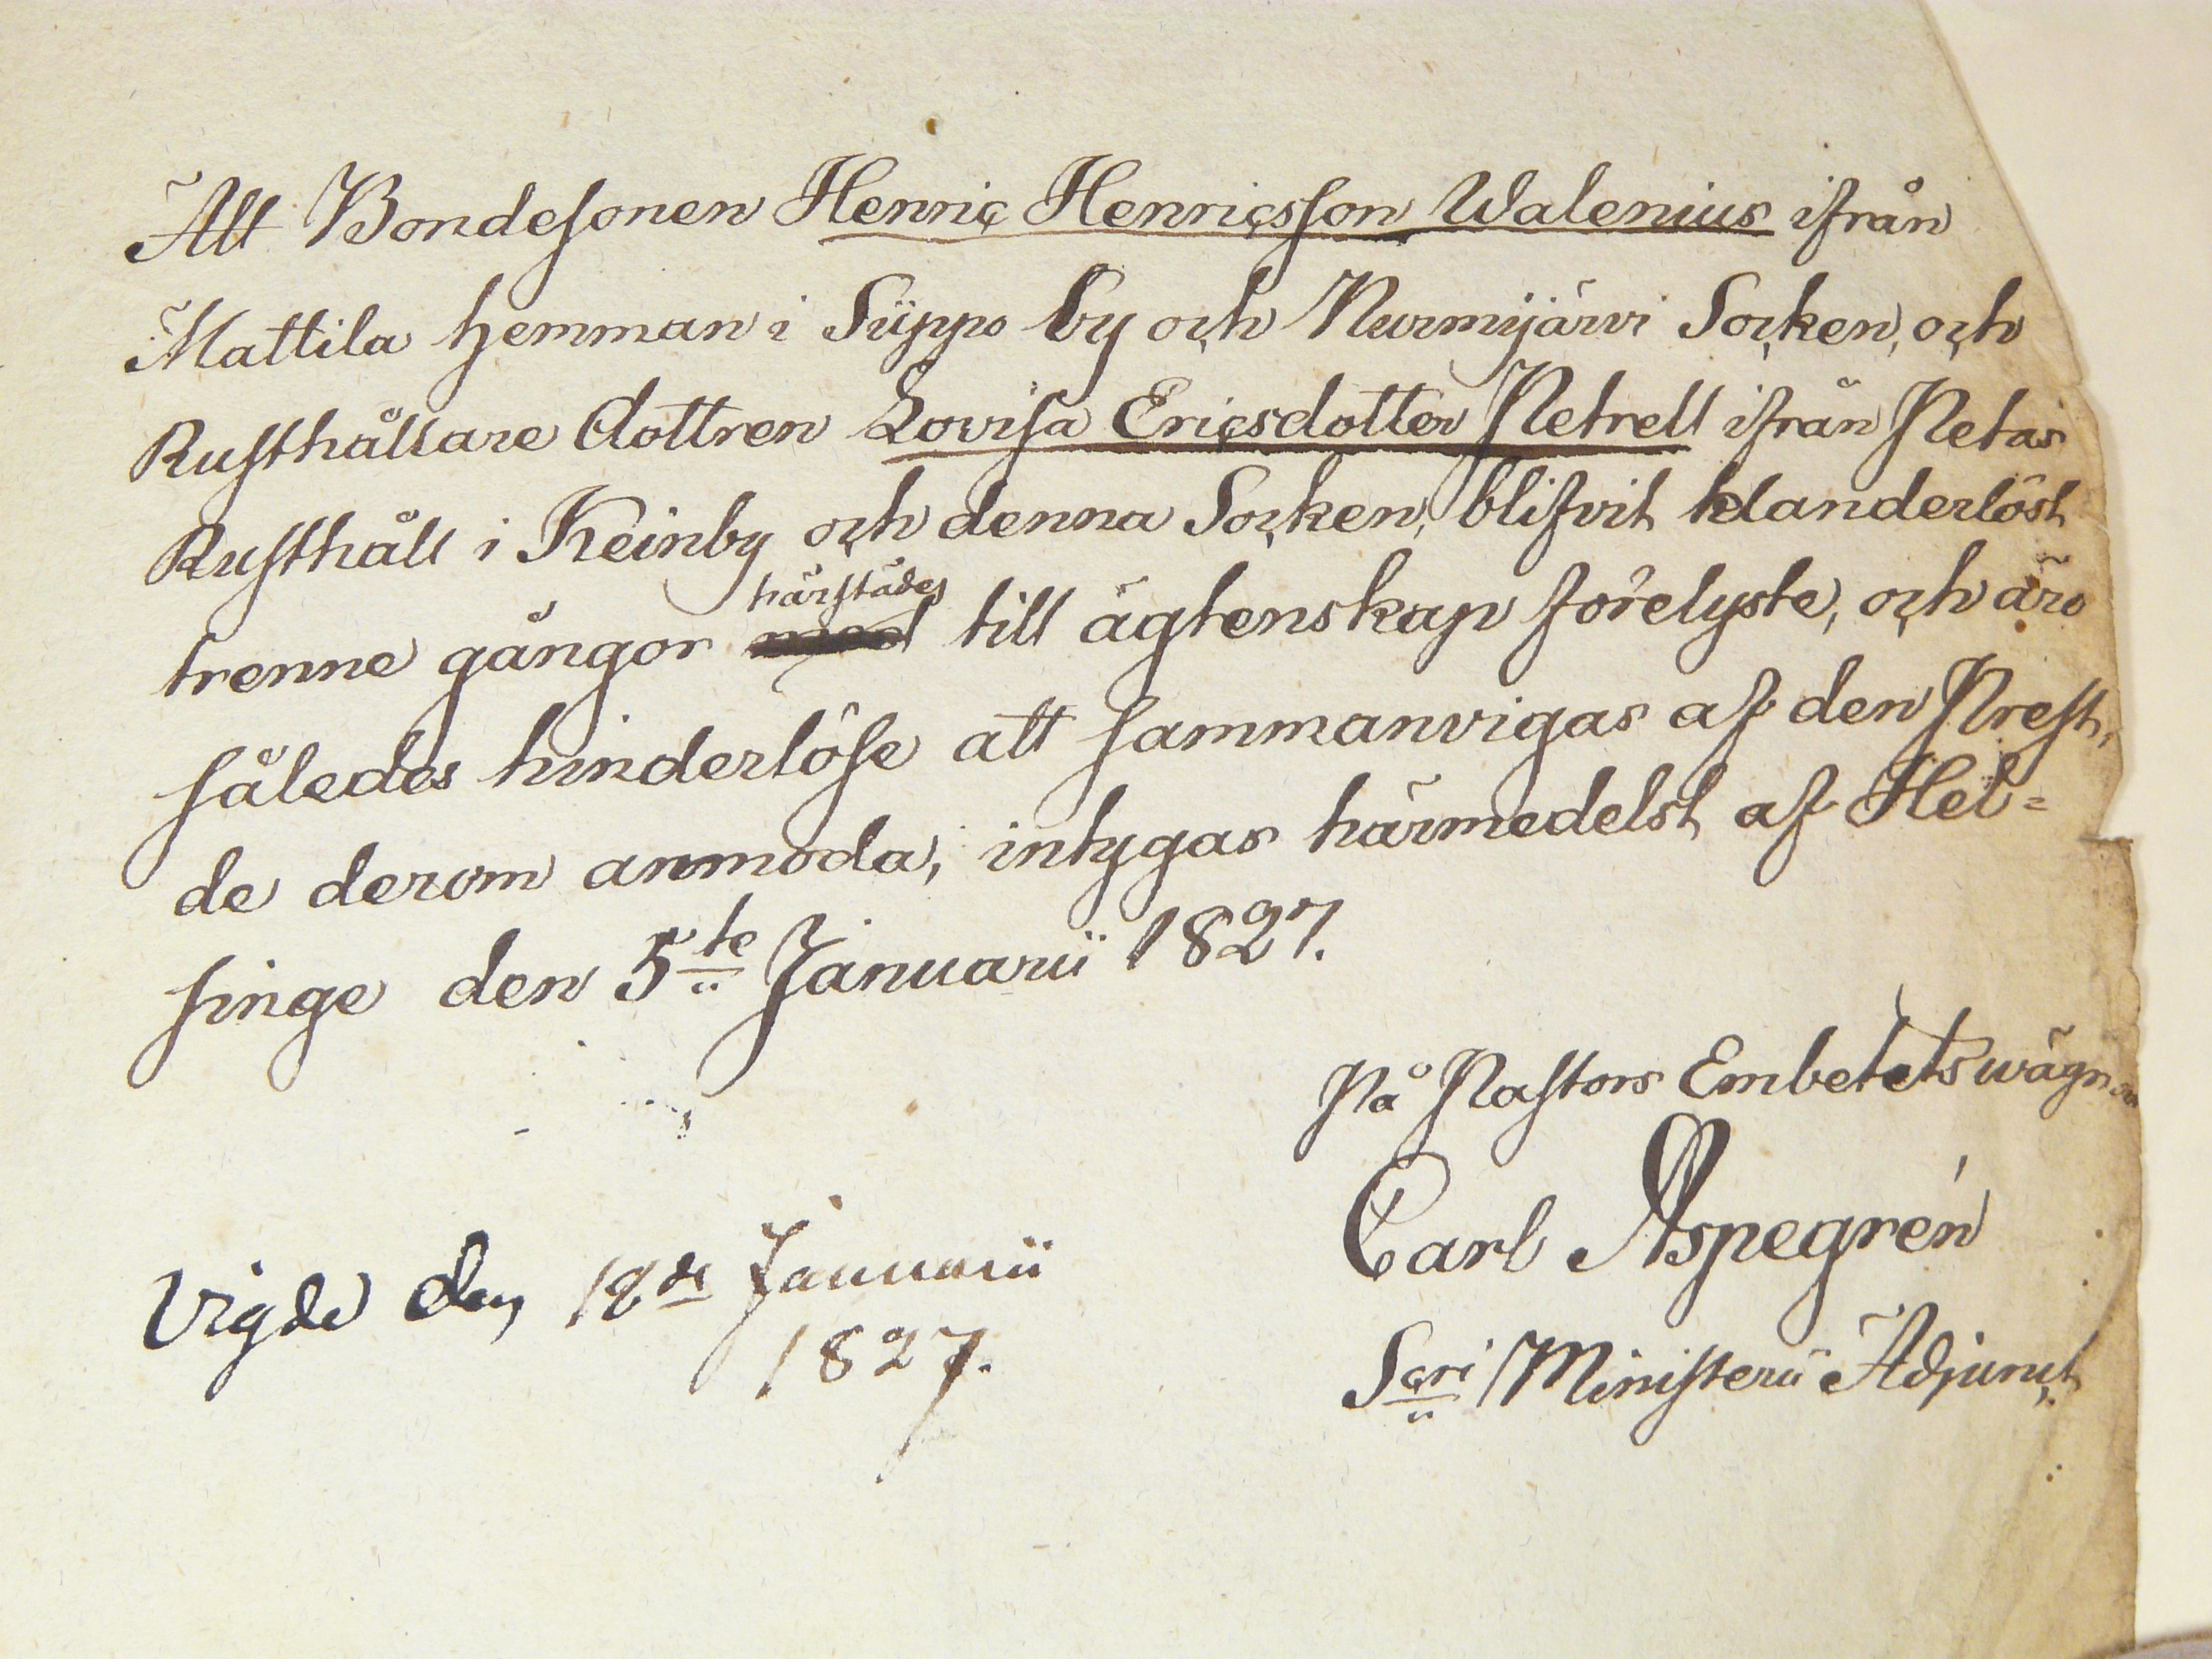 Att Bondesonen Henric Henricsson Walenius ifrån
Mattila hemman i Siippo by och Nurmijärvi Socken, och
Rusthållare dottren Lovisa Ericsdotter Petrell ifrån Petas
Rusthåll i Keinby och denna Socken, blifvit klanderlöst
härstädes
trenne gångor till ägtenskap förelyste, och äro
således hinderlöse att sammanvigas af den Prest,
de derom anmoda, intygas härmedelst af Hel=
singe den 5te Januarii 1827.
På Pastors Embetets wägnar
Carl Aspegrén
Scri Ministerii Adjunct.
Vigde den 18de Januarii
1827.